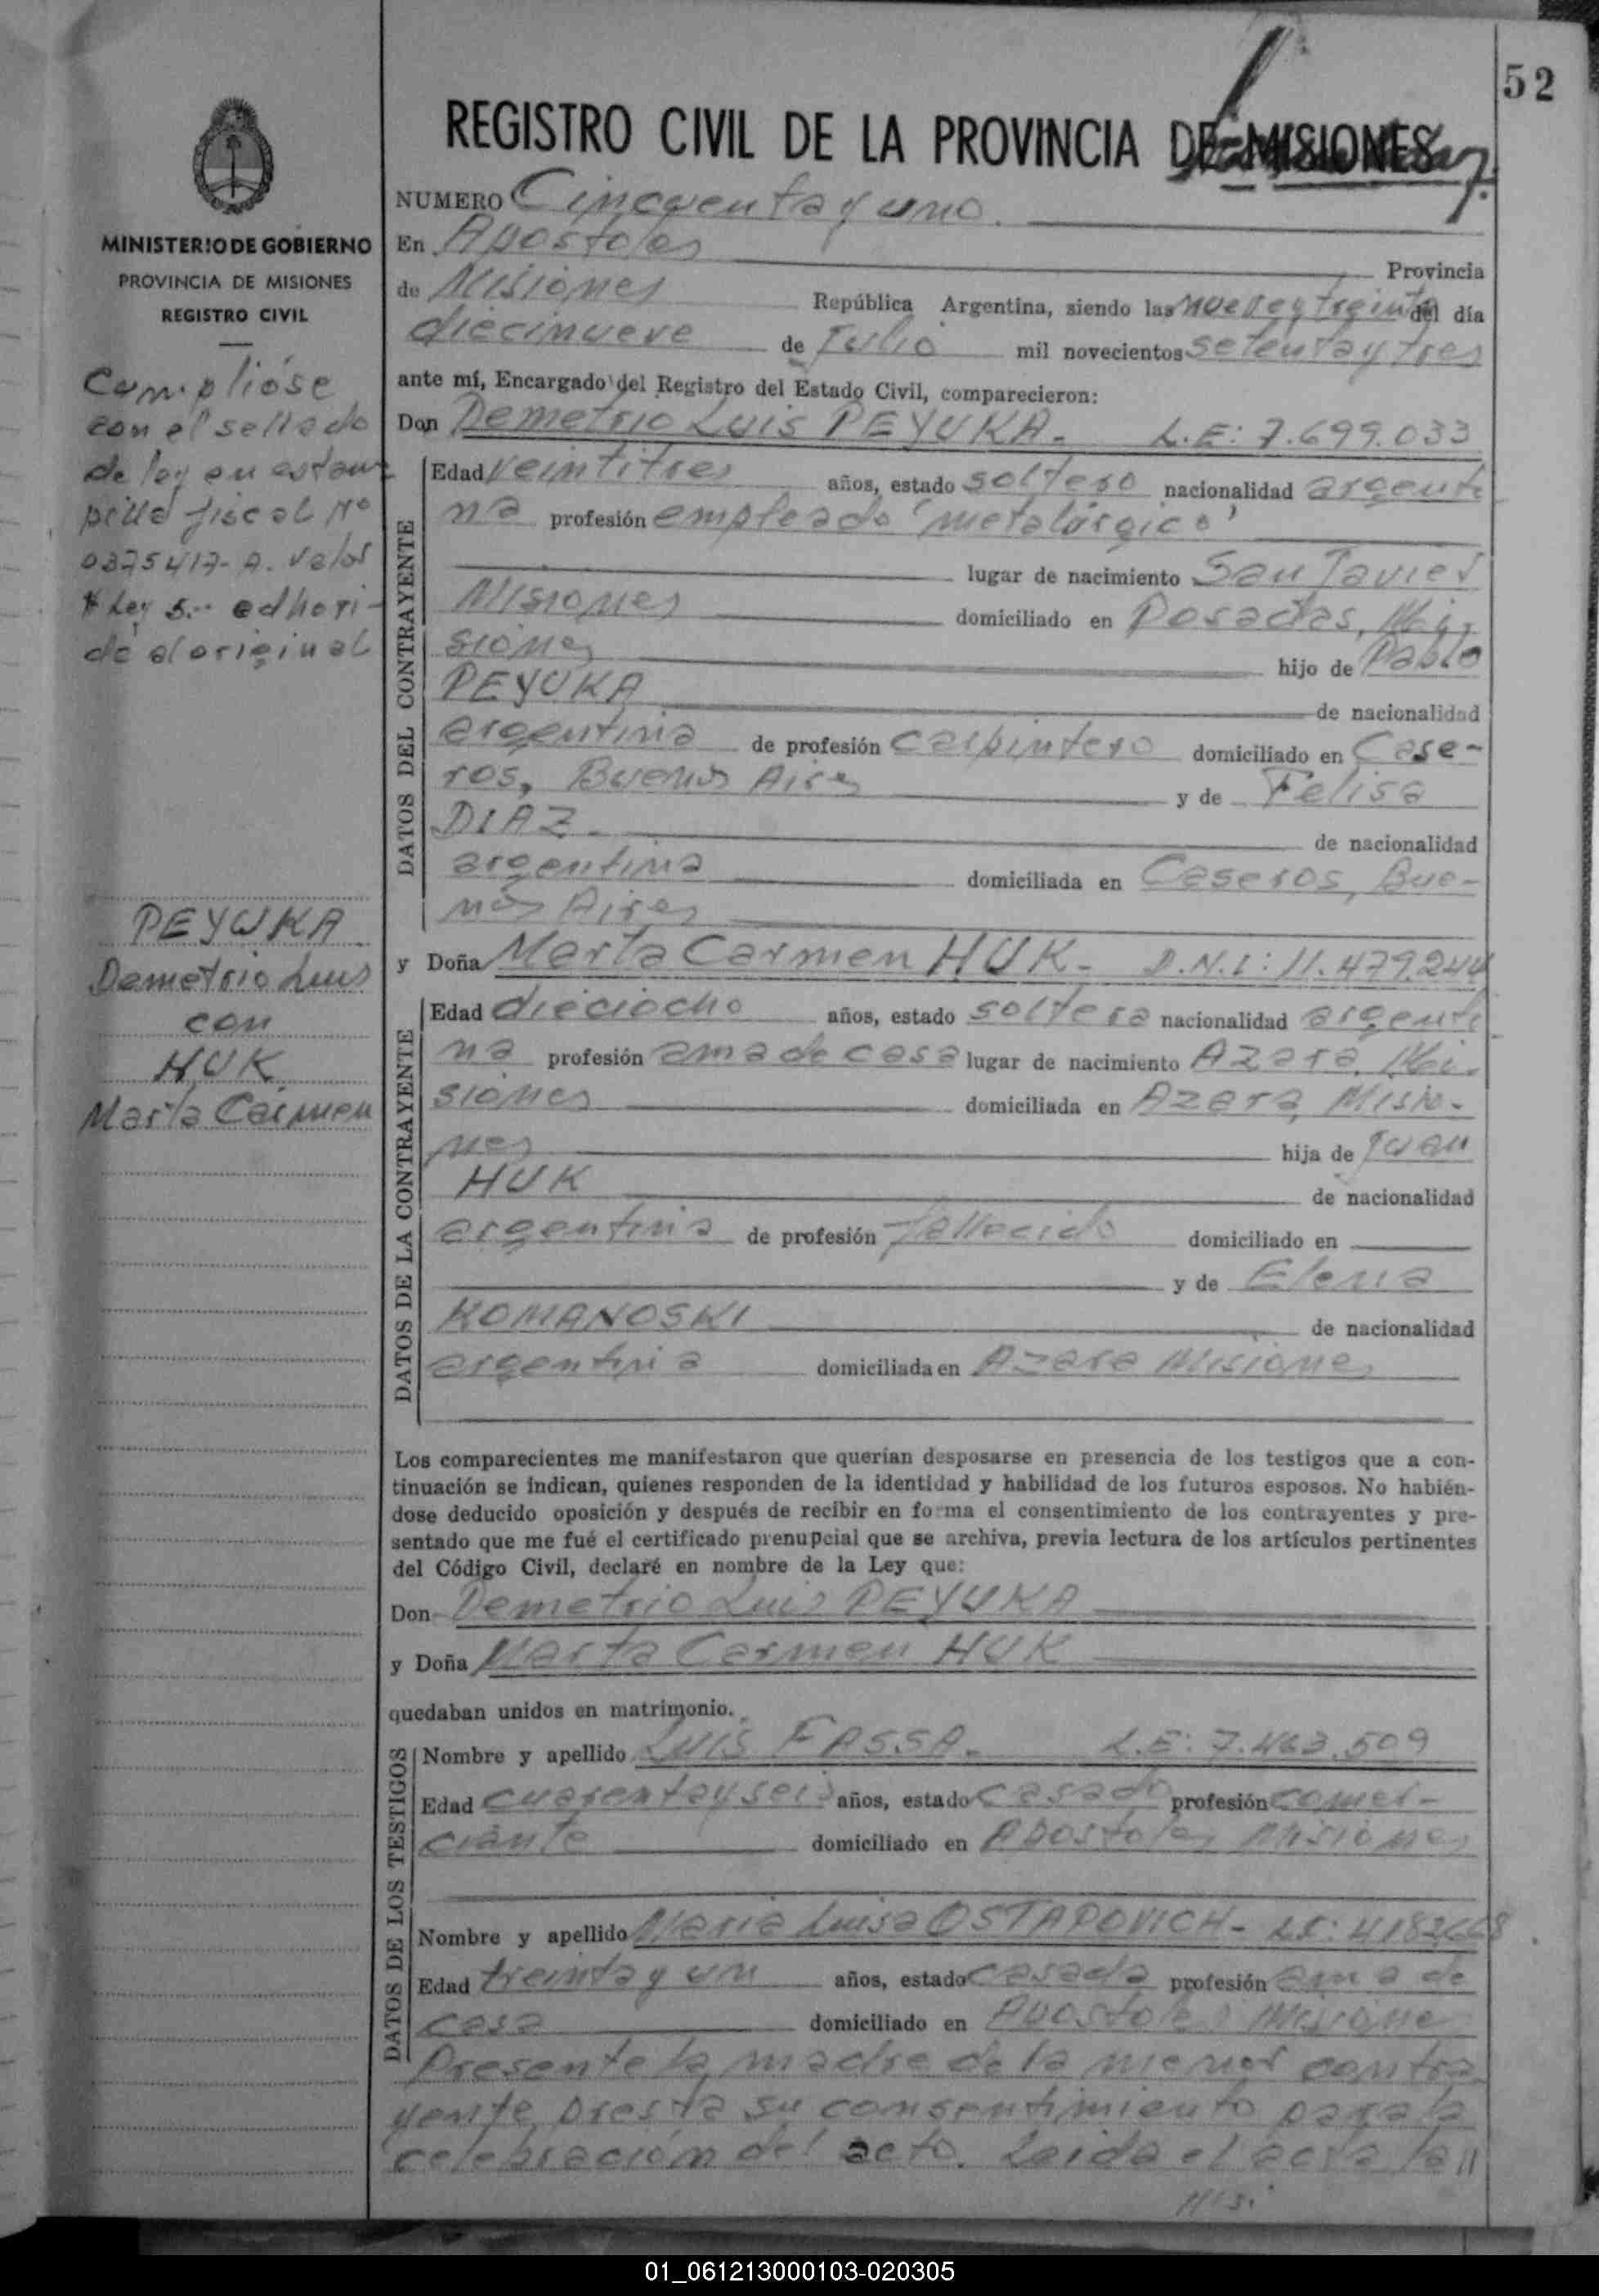 52
REGISTRO CIVIL DE LA PROVINCIA DE MISIONES
NUMERO Cincuenta y uno.
MINISTERIO DE GOBIERNO
PROVINCIA DE MISIONES
REGISTRO CIVIL
En Apostoles Provincia
de Misiones República Argentina, siendo las nueve y treinta del día
diecinueve de Julio mil novecientos setenta y tres
ante mí, Encargado del Registro del Estado Civil, comparecieron:
Don Demetrio Luis PEYUKA. L.E: 7.699.033
Cumplióse
con el sellado
de ley en estam
pilla fiscal Nº
0375417-A. valor
$ Ley 5.- adheri-
da al original
DATOS DEL CONTRAYENTE
Edad veintitres años, estado soltero nacionalidad argenti
na profesión empleado "metalúrgico"
lugar de nacimiento San Javier
Misiones domiciliado en Posadas, Mi-
siones hijo de Pablo
PEYUKA de nacionalidad
argentina de profesión carpintero domiciliado en Case-
ros, Buenos Aires y de Felisa
DIAZ. de nacionalidad
argentina domiciliada en Caseros, Bue-
nos Aires
PEYUKA
Demetrio Luis
con
HUK
Marta Carmen
y Doña Marta Carmen HUK. D.N.I: 11.479.244
DATOS DE LA CONTRAYENTE
Edad dieciocho años, estado soltera nacionalidad argenti
na profesión ama de casa lugar de nacimiento Azara, Mi-
siones domiciliada en Azara, Misio-
nes hija de Juan
HUK de nacionalidad
argentina de profesión fallecido domiciliado en
y de Elena
KOMANOSKI de nacionalidad
argentina domiciliada en Azara Misiones
Los comparecientes me manifestaron que querían desposarse en presencia de los testigos que a con-
tinuación se indican, quienes responden de la identidad y habilidad de los futuros esposos. No habién-
dose deducido oposición y después de recibir en forma el consentimiento de los contrayentes y pre-
sentado que me fué el certificado prenupcial que se archiva, previa lectura de los artículos pertinentes
del Código Civil, declaré en nombre de la Ley que:
Don Demetrio Luis PEYUKA
y Doña Marta Carmen HUK
quedaban unidos en matrimonio.
DATOS DE LOS TESTIGOS
Nombre y apellido LUIS FASSA. L.E: 7.463.509
Edad cuarenta y seis años, estado casado profesión comer-
ciante domiciliado en Apostoles Misiones
Nombre y apellido Maria Luisa OSTAPOVICH- L.E: 4182668
Edad treinta y un años, estado casada profesión ama de
casa domiciliado en Apostoles Misione
Presente la madre de la menor contra
yente, presta su consentimiento para la
celebración del acto. Leida el acta la//
01_061213000103-020305